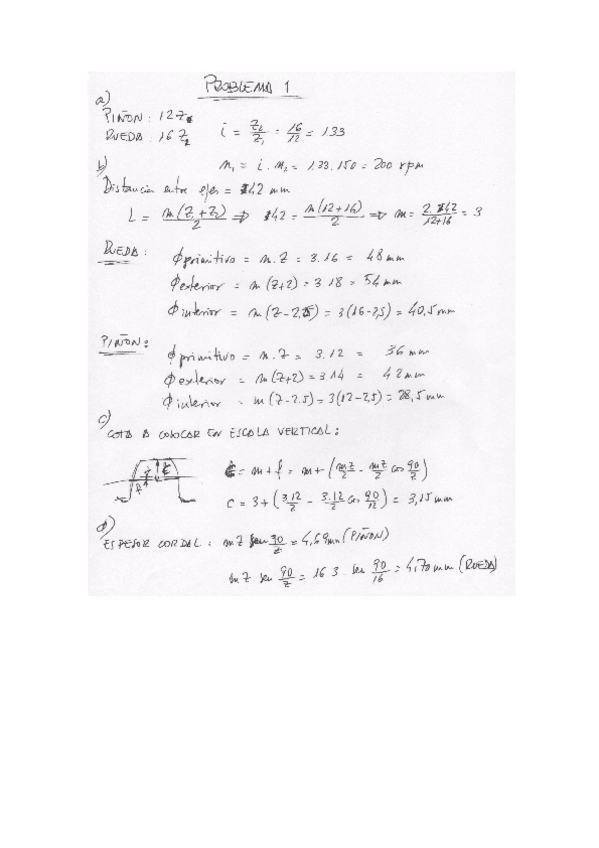 PROBLEMA 1
a)
PIÑON: 12 Z1
RUEDA: 16 Z2 i = Z2/Z1 = 16/12 = 133
b) n1 = i . n2 = 1.33 . 150 = 200 rpm
Distancia entre ejes = 42 mm
L = m(Z1+Z2)/2 ⇒ 42 = m(12+16)/2 ⇒ m = 2.42/12+16 = 3
RUEDA: ϕ primitivo = m.Z = 3.16 = 48 mm
ϕ exterior = m(Z+2) = 3.18 = 54 mm
ϕ interior = m(Z-2,5) = 3(16-2,5) = 40,5 mm
PIÑON: ϕ primitivo = m.Z = 3.12 = 36 mm
ϕ exterior = m(Z+2) = 3.14 = 42 mm
ϕ interior = m(Z-2.5) = 3(12-2,5) = 28,5 mm
c)
COTA A COLOCAR EN ESCALA VERTICAL:
c = m + f = m + (mZ/2 - mZ/2 cos 90/Z)
c = 3 + (3.12/2 - 3.12/2 cos 90/12) = 3,15 mm
d)
ESPESOR CORDAL: mZ sen 90/Z = 4,69 mm (PIÑON)
mZ sen 90/Z = 16 3 . sen 90/16 = 4,70 mm (RUEDA)